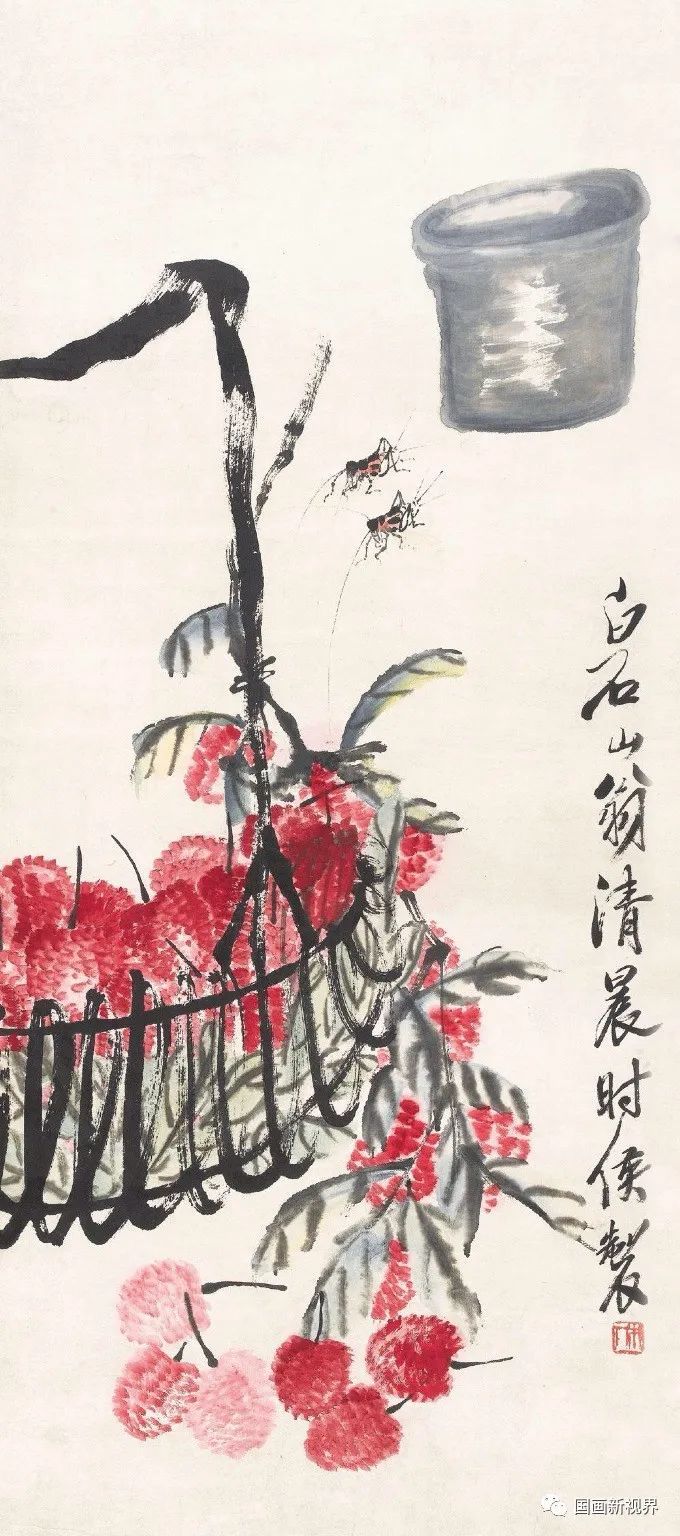 白石山翁清晨时侯製
国画新视界